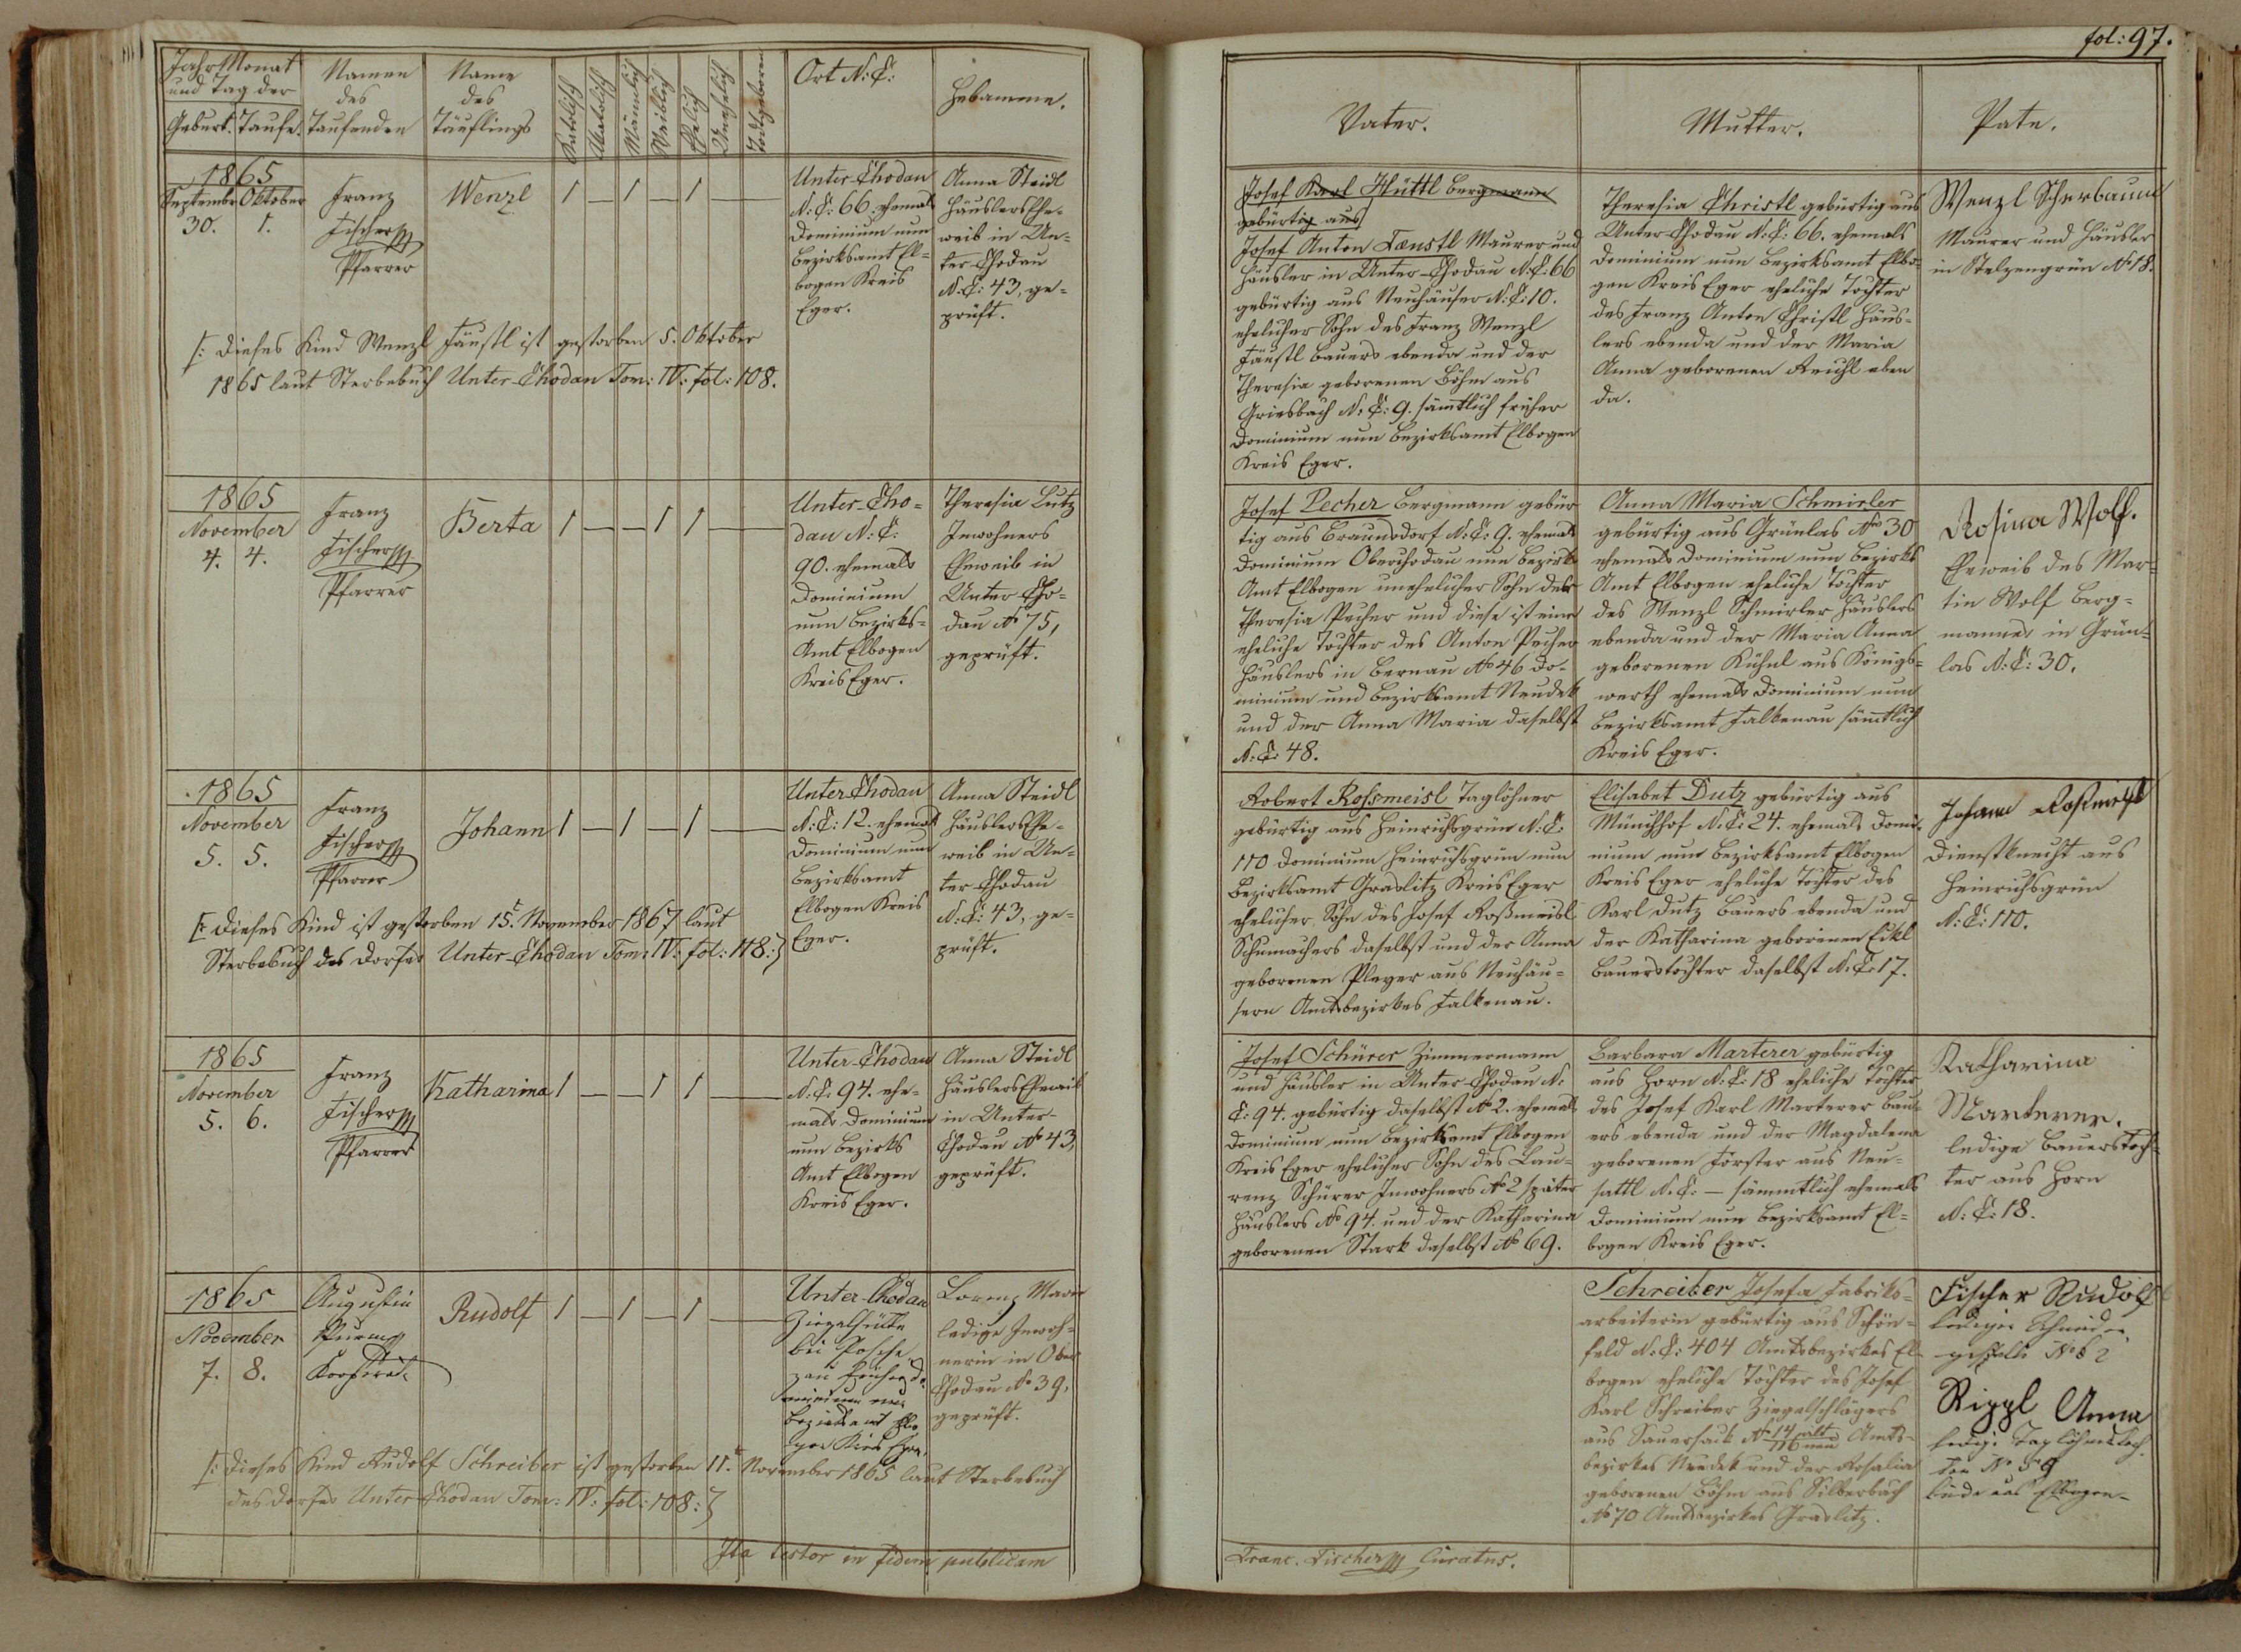 fol: 97.
Jahr Monat
und Tag der
Geburt. Taufe.
Namen
des
Taufenden
Name
des
Täuflings
Katolisch
Akatolisch
Männlich
Weiblich
Ehelich
Unehelich
Todtgeboren
Ort N: C:
Hebamme.
Vater.
Mutter.
Pate.
1865
September Oktober
30. 1.
Franz
Fischer
Pfarrer
Wenzl
1 — 1 — 1 —
Unter-Chodau
N: C: 66. ehemals
Dominium nun
Bezirksamt El=
bogen Kreis
Eger.
Anna Steidl
Häuslers Ehe-
weib in Un=
ter-Chodau
N: C: 43, ge-
prüft.
[: Dieses Kind Wenzl Fäustl ist gestorben 5. Oktober
1865 laut Sterbebuch Unter-Chodau Tom: IV: fol: 108.
Josef Karl Hüttl Bergmann
gebürtig aus
Josef Anton Faenstl Maurer und
Häusler in Unter-Chodau N: C: 66
gebürtig aus Neuhäuser N: C: 10.
ehelicher Sohn des Franz Wenzl
Fäustl Bauers ebenda und der
Theresia geborenen Böhm aus
Griesbach N: C: 9. sämtlich früher
Dominium nun Bezirksamt Elbogen
Kreis Eger.
Theresia Christl gebürtig aus
Unter-Chodau N: C: 66. ehemals
Dominium nun Bezirksamt Elbo-
gen Kreis Eger eheliche Tochter
des Franz Anton Christl Häus-
lers ebenda und der Maria
Anna geborenen Reichl eben
da.
Wenzl Scherbaum
Maurer und Häusler
in Stelzengrün No 18.
1865
November
4. 4.
Franz
Fischer
Pfarrer
Berta
1 — — 1 1 —
Unter-Cho=
dau N: C:
90. ehemals
Dominium
nun Bezirks=
Amt Elbogen
Kreis Eger.
Theresia Lutz
Inwohners
Eheweib in
Unter Cho-
dau No 75,
geprüft.
Josef Pecher Bergmann gebür
tig aus Braunsdorf N: C: 9. ehemals
Dominium Oberchodau nun Bezirks
Amt Elbogen unehelicher Sohn der
Theresia Pecher und diese ist eine
eheliche Tochter des Anton Pecher
Häuslers in Bernau No 46 Do-
minium und Bezirksamt Neudek
und der Anna Maria daselbst
N: C: 48.
Anna Maria Schmirler
gebürtig aus Grünlas No 30
ehemals Dominium nun Bezirks
Amt Elbogen eheliche Tochter
des Wenzl Schmirler Häuslers
ebenda und der Maria Anna
geborenen Kühnl aus Königs=
werth ehemals Dominium nun
Bezirksamt Falkenau sämtlich
Kreis Eger.
Rosina Wolf.
Eheweib des Mar=
tin Wolf Berg=
mannes in Grün=
las N: C: 30.
1865
November
5. 5.
Franz
Fischer
Pfarrer
Johann
1 — 1 — 1 —
Unter Chodau
N: C: 12. ehemals
Dominium nun
Bezirksamt
Elbogen Kreis
Eger.
Anna Steidl
Häuslers Ehe-
weib in Un=
ter-Chodau
N: C: 43, ge-
prüft.
[: Dieses Kind ist gestorben 15t November 1867 laut
Sterbebuch des Dorfes Unter-Chodau Tom: IV: fol: 118:]
Robert Rossmeisl Taglöhner
gebürtig aus Heinrichsgrün N: C:
110 Dominium Heinrichsgrün nun
Bezirksamt Graslitz Kreis Eger
ehelicher Sohn des Josef Roßmeisl
Schumachers daselbst und der Anna
geborenen Pleyer aus Neuhäu=
sern Amtsbezirkes Falkenau.
Elisabet Dutz gebürtig aus
Münichhof N: C: 24. ehemals Domi-
nium nun Bezirksamt Elbogen
Kreis Eger eheliche Tochter des
Karl Dutz Bauers ebenda und
der Katharina geborenen Eikl
Bauerstochter daselbst N: C: 17.
Johann Roßmeisl
Dienstknecht aus
Heinrichsgrün
N: C: 110.
1865
November
5. 6.
Franz
Fischer
Pfarrer
Katharina
1 — — 1 1 —
Unter-Chodau
N: C: 94. ehe-
mals Dominium
nun Bezirks
Amt Elbogen
Kreis Eger.
Anna Steidl
Häuslers Eheweib
in Unter-
Chodau No 43,
geprüft.
Josef Schürer Zimmermann
und Häusler in Unter-Chodau N:
C: 94. gebürtig daselbst No 2. ehemals
Dominium nun Bezirksamt Elbogen
Kreis Eger ehelicher Sohn des Lau-
renz Schürer Inwohners No 2 später
Häuslers No 94. und der Katharina
geborenen Stark daselbst No 69.
Barbara Marterer gebürtig
aus Horn N: C: 18 eheliche Tochter
des Josef Karl Marterer Bau-
ers ebenda und der Magdalena
geborenen Förster aus Neu=
sattl N: C: — sämmtlich ehemals
Dominium nun Bezirksamt El=
bogen Kreis Eger.
Katharina
Marterer.
ledige Bauerstoch=
ter aus Horn
N: C: 18.
1865
November
7. 8.
Augustin
Rudolf
1 — 1 — 1 —
Unter-Chodau
Ziegelhütte
bei
Bezirksamt
Lorenz Marie
ledige Inwoh=
nerin in Ober
Chodau No 39,
geprüft.
[: Dieses Kind Rudolf Schreiber ist gestorben 11t November 1865 laut Sterbebuch
des Dorfes Unter-Chodau Tom: IV: fol: 108:]
Schreiber Josefa Fabriks=
arbeiterin gebürtig aus Schön=
feld N: C: 404 Amtsbezirkes El-
bogen eheliche Tochter des Josef
Karl Schreiber Ziegelschlägers
aus Sauersack No 14 alt / 116 neu Amts-
bezirkes Neudek und der Rosalia
geborenen Böhm aus Silberbach
No 70 Amtsbezirkes Graslitz.
Fischer Rudolf
lediger Schneider
geselle No 62
Rippl Anna
ledige Taglöhnerstoch
ter No 59
beide aus Elbogen
Ita testor in fidem publicam
Franc. Fischer Curatus.